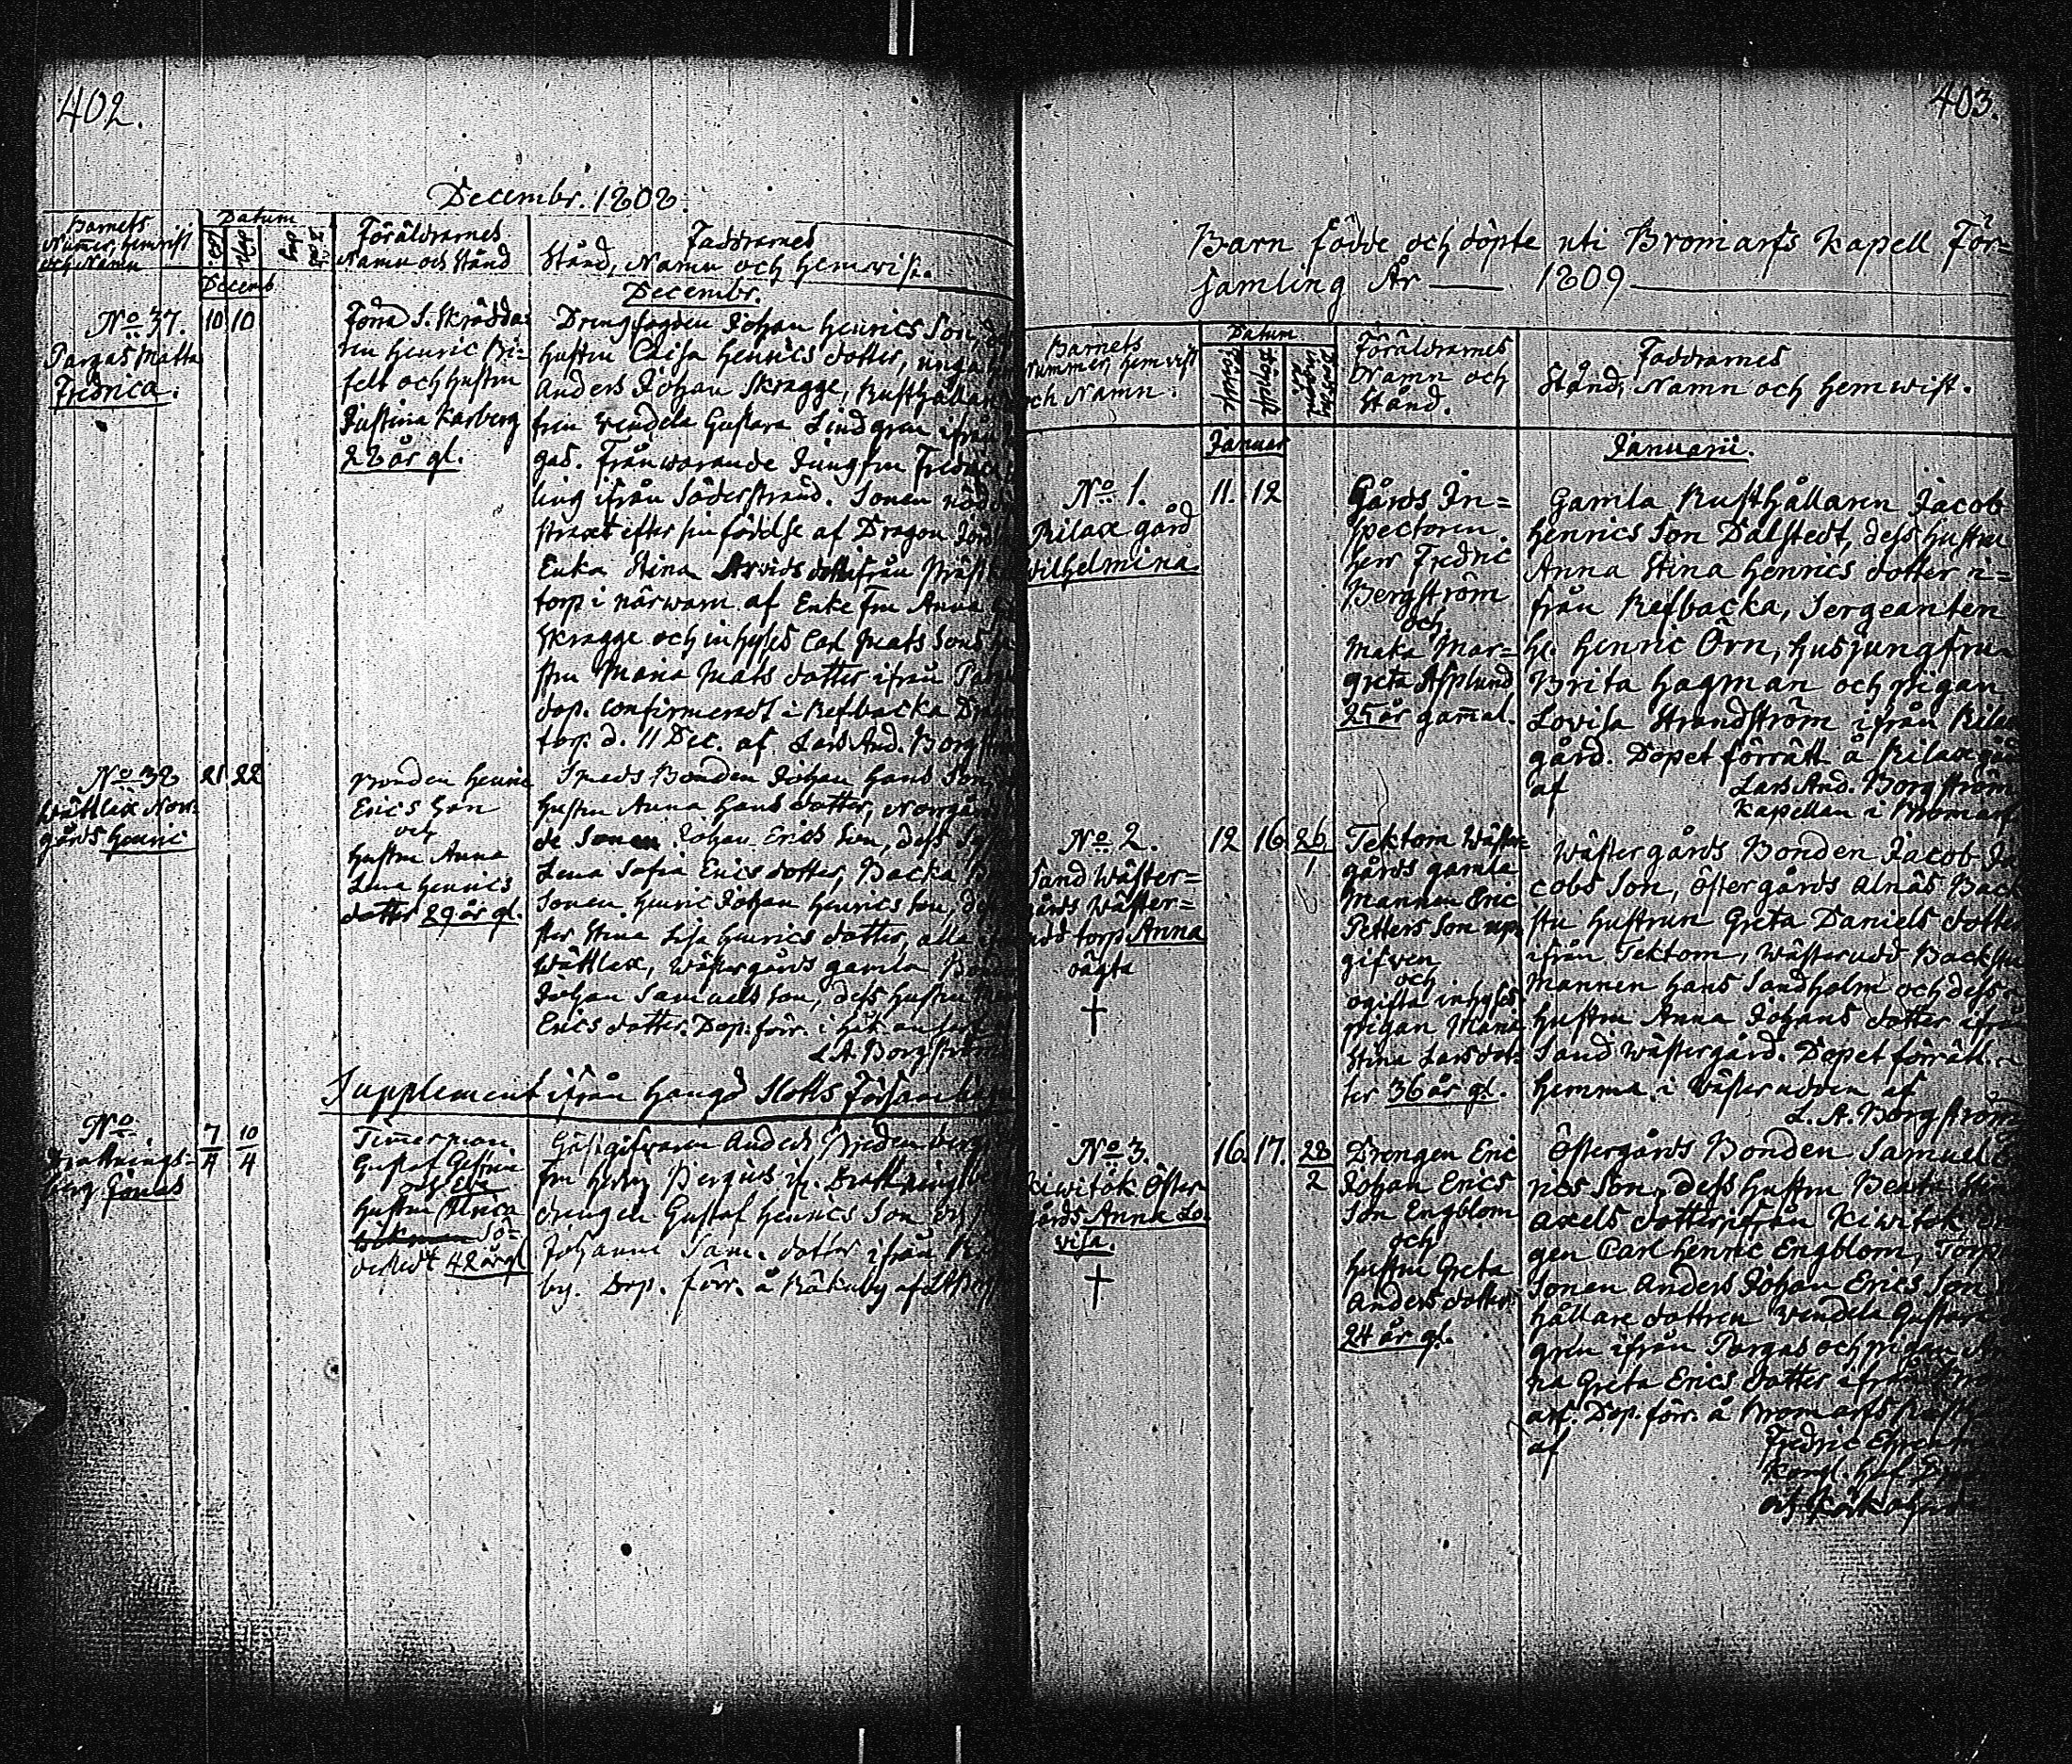 402.
Decembr. 1808.
Barnets
Nummer, hemvist
och Namn
Datum
Föräldrarnes
Namn och Stånd
Faddrarnes
Stånd, Namn och hemvist.
Decemb.
Decembr.
No 37.
Pargas Matts
Fredrica.
10 10
Förra S. Skrädda=
ren Henric Bi=
felt och hustru
Justina Karberg
22 år gl.
Drengfogden Johan Henrics Son,
hustru Caisa Henrics dotter, unga
Anders Johan Skragge, Rusthållar
fren Wendela Gustava Lindgren ifrån
gas. Frånwarande Jungfru Fredrica
ling ifrån Söderstrand. Sonen nöd
straxt efter sin födelse af Dragon
Enka Stina Arvids dotter ifrån
torp i närwaro af Enke Fru Anna
Skragge och inhyses Carl Mats Sons
stru Maria Mats dotter ifrån
dop. confirmeradt i Refbacka
torp. d. 11 Dec. af Lars And. Borgström
No 38
Wättlax Norr=
gårds Henric
21 22
Bonden Henric
Erics Son
och
hustru Anna
Lena Henrics
dotter 29 år gl.
Smeds Bonden Johan Hans Son,
hustru Anna Hans dotter, Norrgårds
de Sonen Johan Erics Son, dess
Lena Sofia Erics dotter, Backa
Sonen Henric Johan Henrics Son,
ster Stina Lisa Henrics dotter, alla
Wättlax, Wästergårds gamla
Johan Samuels Son, dess hustru
Erics dotter. Dop. förr. i
L. A. Borgström
Supplement ifrån Hangö Slotts Församling
No
berg Jonas
7/4 10/4
Timmerman
Gustaf
och
hustru Ulrica
42 år gl
Gästgifwaren Anders
drengen Gustaf Henrics Son och
Johanna Sam. dotter ifrån
by. Dop. förr. å
403.
Barn födde och döpte uti Bromarfs Kapell För=
samling År — 1809
Barnets
Nummer, hemvist
och Namn.
Datum
Födelse
Döpelse
Föräldrarnes
Namn och
Stånd.
Faddrarnes
Stånd, Namn och hemwist.
Januar
Januarii.
No 1.
Rilax gård
Wilhelmina.
11. 12
Gårds In=
spectoren
Herr Fredric
Bergström
och
Maka Mar=
greta Asplund
25 år gamal.
Gamla Rusthållaren Jacob
Henrics Son Dalstedt, dess hustru
Anna Stina Henrics dotter i=
från Refbacka, Sergeanten
Hr. Henric Örn, husjungfrun
Brita Hagman och pigan
Lovisa Strandström ifrån Rilax
gård. Dopet förrätt. å Rilax gård
af Lars And. Borgström
Kapellan i Bromarf
No 2.
Sand Wäster=
gårds Wäster=
udd torp Anna
oägta
†
12 16 26/1
Tektom Wäster=
gårds gamla
Mannen Eric
Petters Son up=
gifwen
och
ogifta inhyses
pigan Maria
Stina Larsdot=
ter 36 år gl.
Wästergårds Bonden Jacob Ja
cobs Son, Östergårds Alnäs Back
stu hustrun Greta Daniels dotter
ifrån Tektom, Wästerudd Backstu
Mannen Hans Sandholm och dess
hustru Anna Johans dotter ifrån
Sand Wästergård. Dopet förrätt.
hemma i Wästerudden af
L. A. Borgström
No 3.
Kiwitok Öster
gårds Anna Lo=
visa.
†
16. 17. 28/2
Drengen Eric
Johan Erics
Son Engblom
och
hustru Greta
Anders dotter
24 år gl.
Östergårds Bonden Samuel E
rics Son, dess hustru Beata Stina
Axels dotter ifrån Kiwitok
gen Carl Henric Engblom, Torp
Sonen Anders Johan Erics Son
hållare dottren Wendela Gustava
gren ifrån Pargas och pigan An
na Greta Erics dotter ifrån
arf. Dop. förr. å Bromarfs
af Fredric
Kongl. Hof
och